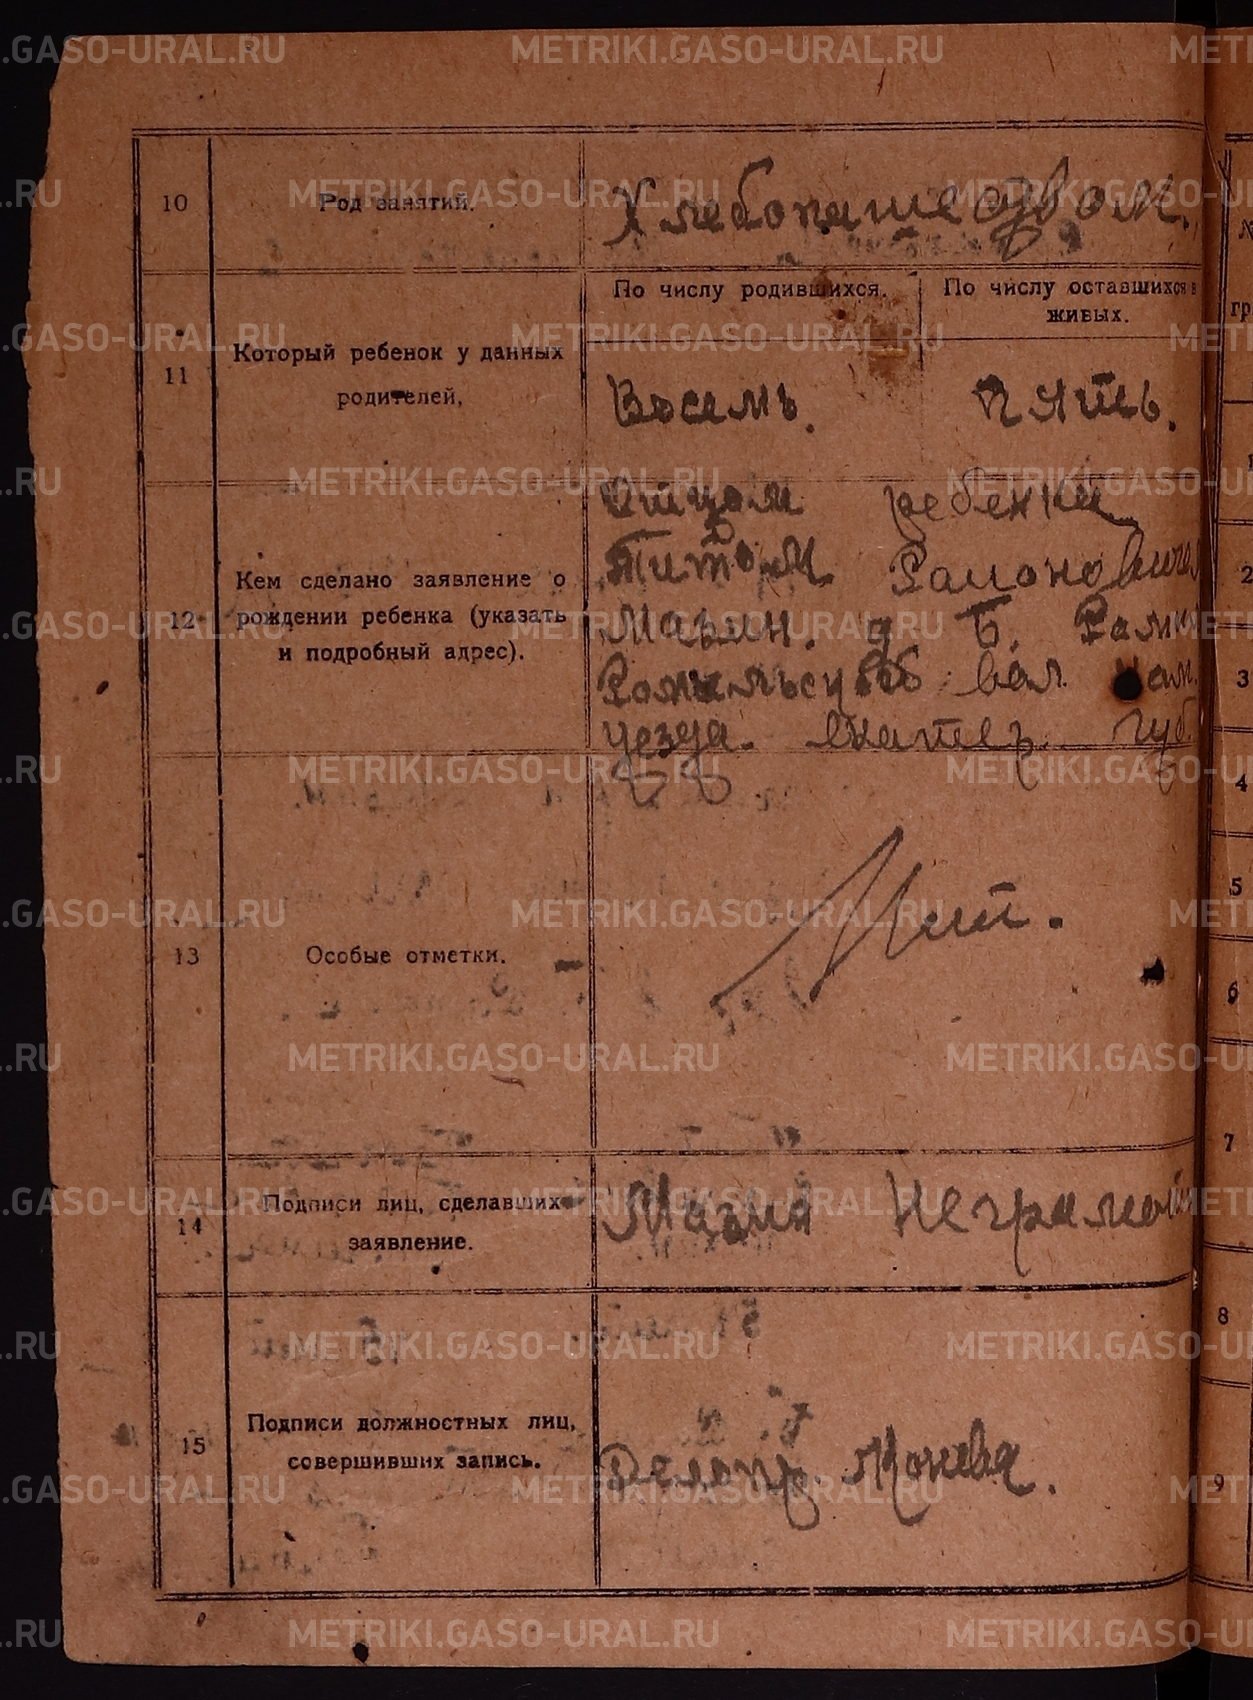 10
Род занятий.
Хлебопашеством.
11
Который ребенок у данных
родителей.
По числу родившихся.
По числу оставшихся в
живых.
Восемь.
Пять.
12
Кем сделано заявление о
рождении ребенка (указать
и подробный адрес).
Отцом ребенка
Титом
Мазин. д Б.
вол.
уезда. Екатер. губ.
13
Особые отметки.
Нет.
14
Подписи лиц, сделавших
заявление.
Мазин Неграмот
15
Подписи должностных лиц,
совершивших запись.
Делопр.
2
3
4
5
6
7
8
9
METRIKI.GASO-URAL.RU